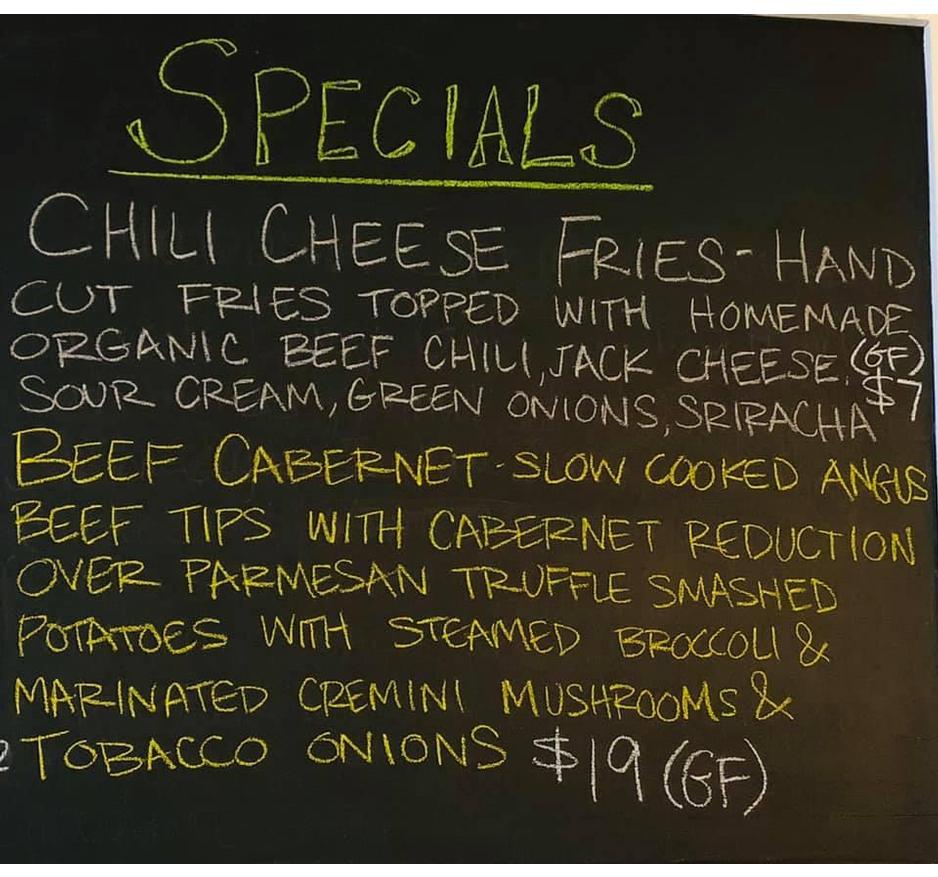 SPECIALS
CHILI CHEESE FRIES - HAND
CUT FRIES TOPPED WITH HOMEMADE
ORGANIC BEEF CHILI, JACK CHEESE, (GF)
SOUR CREAM, GREEN ONIONS, SRIRACHA $7
BEEF CABERNET - SLOW COOKED ANGUS
BEEF TIPS WITH CABERNET REDUCTION
OVER PARMESAN TRUFFLE SMASHED
POTATOES WITH STEAMED BROCCOLI &
MARINATED CREMINI MUSHROOMS &
TOBACCO ONIONS $19 (GF)